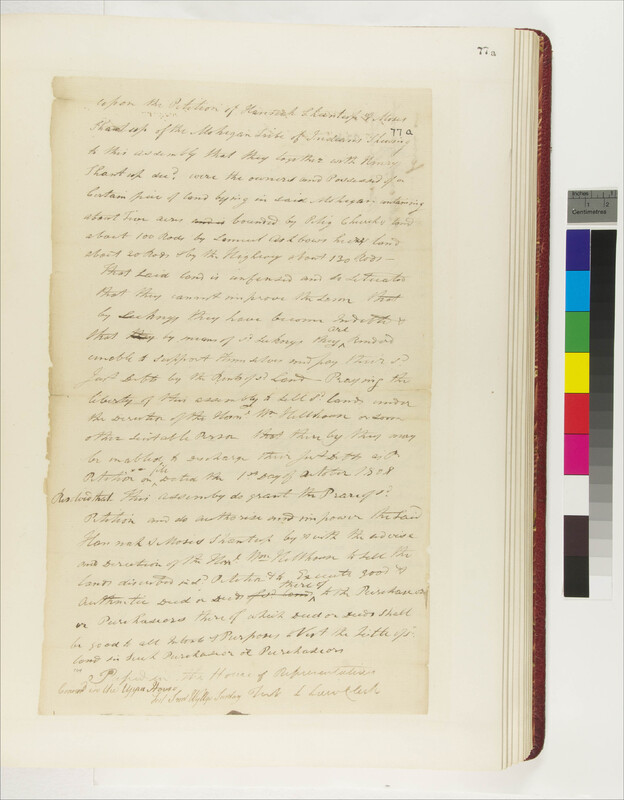 77a
77a
upon the Petition of Hannah Shantup & Moses
Shantup of the Mohegan tribe of Indians Shewing
to this assembly that they together with Henry
Shantup decd. were the owners and Possessed of a
Certain piece of land lying in said Mohegan containing
about acres bounded by Peleg Church land
about 100 Rods by Samuel Ashbows land
about 20 Rods & by the Highway about 130 Rods—
that said land is unfenced and so situated
that they cannot improve the same that
by sickness they have become Indebted &
that they by means of sd. sickness they are rendred
unable to support themselves and pay their sd
Just Debts by the Rents of sd. Land — Praying the
liberty of this assembly to sell sd. lands under
the Direction of the Honl. Wm Hillhouse or some
other Suitable Person that thereby they may
be enabled to discharge their Just Debts as Pr
Petition on file Dated the 1st Day of October
Resolved that this assembly do grant the Prayer of sd.
Petition and do authorise and impower the said
Hannah & Moses Shantup by & with the advise
and Direction of the Honl. Wm Hillhouse to sell the
lands discribed in sd. Petition & to Execute good &
Authentic Deed or Deeds thereof to the Purchaser
or Purchasers thereof which Deed or Deeds Shall
be good to all Intents & Purposes to Vest the title of sd.
land in such Purchaser or Purchasers
Passed in the House of Representatives
Concurd in the Upper House
Test Test